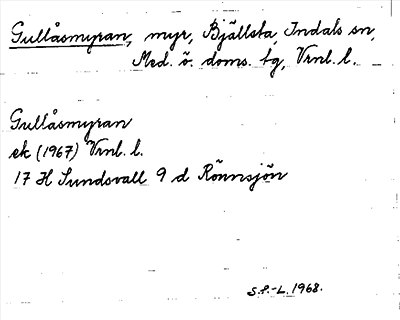 Gullåsmyran, myr, Bjällsta, Indals sn,
Med. ö. doms. tg, Vrnl. l.
Gullåsmyran
ek (1967) Vrnl. l.
17 H Sundsvall 9 d Rönnsjön
S.P.-L. 1968.